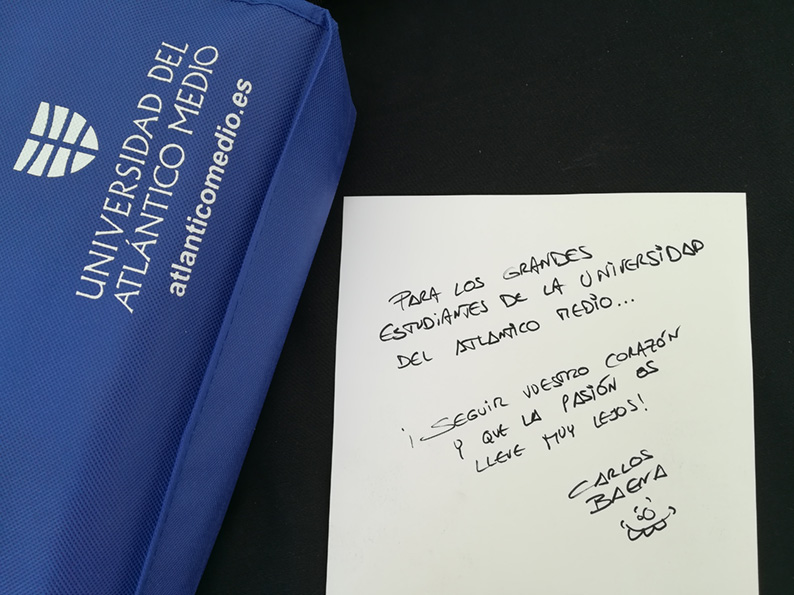 UNIVERSIDAD DEL
ATLÁNTICO MEDIO
atlanticomedio.es
PARA LOS GRANDES
ESTUDIANTES DE LA UNIVERSIDAD
DEL ATLANTICO MEDIO...
¡SEGUIR VUESTRO CORAZÓN
Y QUE LA PASIÓN OS
LLEVE MUY LEJOS!
CARLOS
BAENA